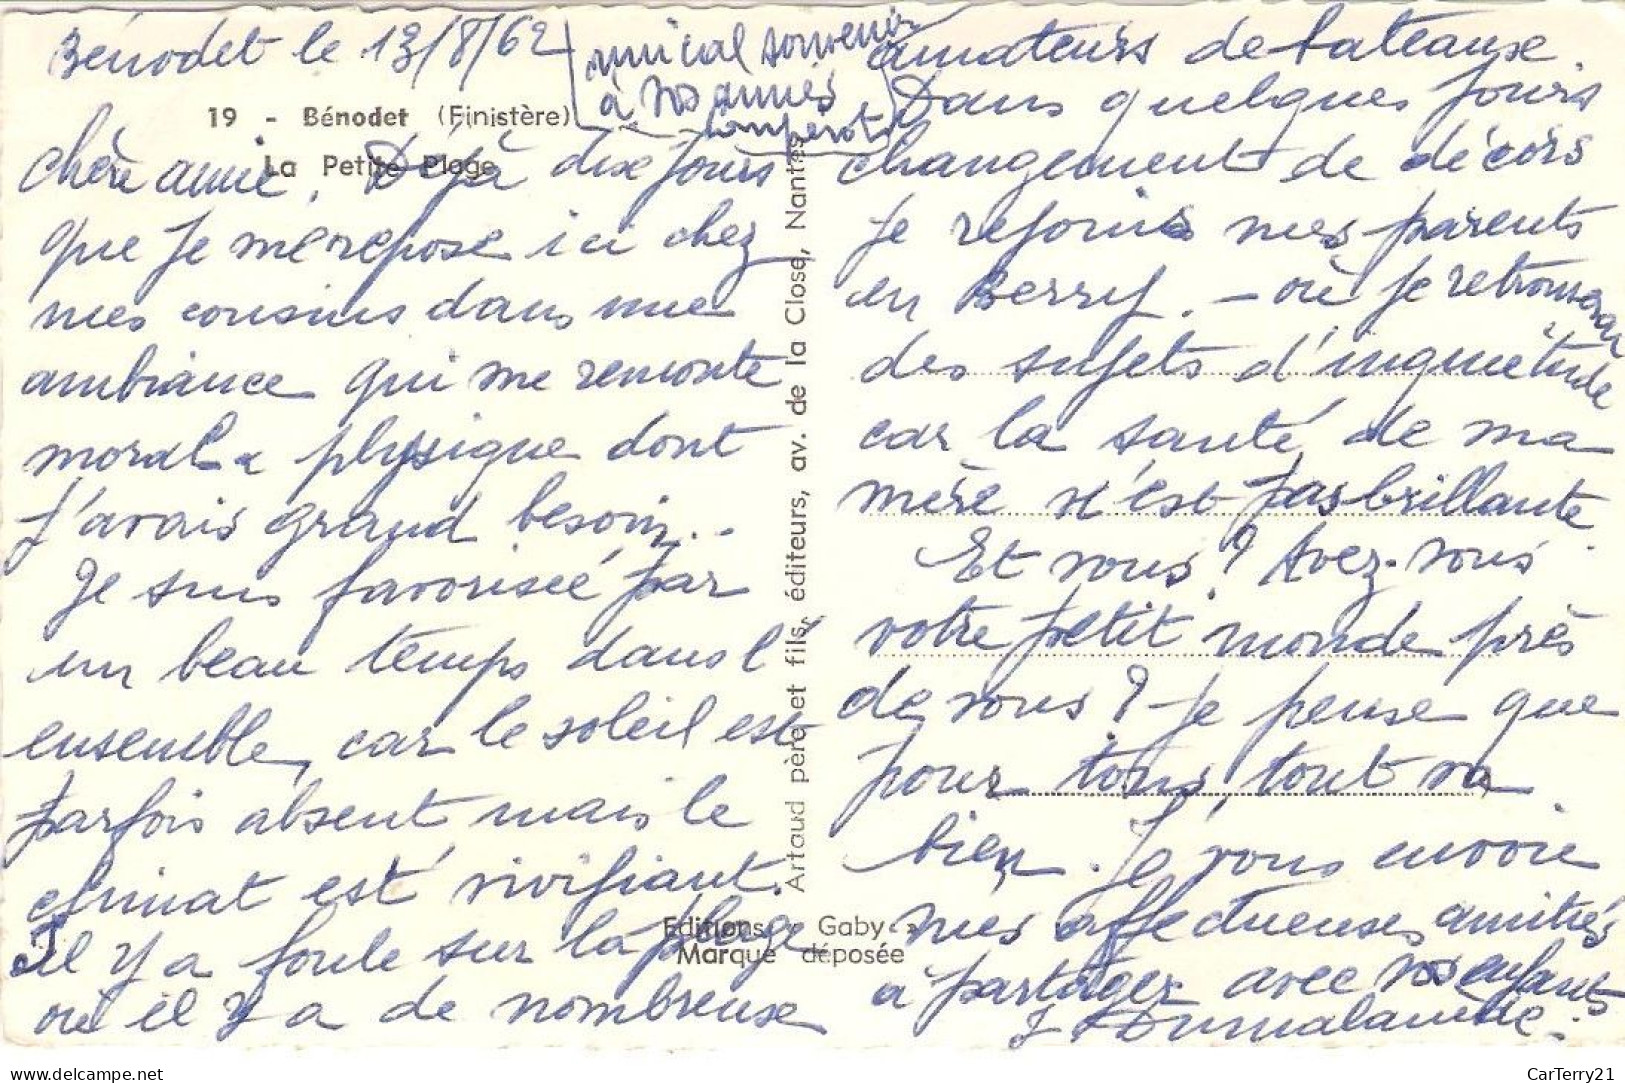 Bénodet le 13/8/62
amical souvenir
à vos amies
19 - Bénodet (Finistère)
La Petite Plage
chère amie. Déjà dix jours
que je me repose ici chez
mes cousins dans une
ambiance qui me remonte
moral & physique dont
j'avais grand besoin...
Je suis favorisée par
un beau temps dans l'
ensemble, car le soleil est
parfois absent mais le
climat est vivifiant.
Il y a foule sur la plage
où il y a de nombreuse
Artaud père et fils, éditeurs, av. de la Close, Nantes
Editions Gaby
Marque déposée
amateurs de bateause.
Dans quelques jours
changement de décors
je rejoins mes parents
en Berry. - où je retrouverai
des sujets d'inquiétude
car la santé de ma
mère n'est pas brillante
Et vous? Avez-vous
votre petit monde près
de vous? Je pense que
pour tous, tout va
bien. Je vous envoie
mes affectueuses amitiés
à partager avec vos enfants
CarTerry21
www.delcampe.net